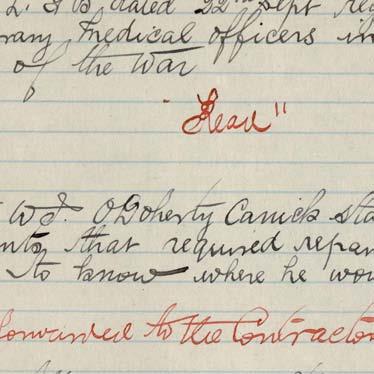 L. G. B. dated 22nd Sept
Medical officers in
of the War
"Read"
W. J. O'Doherty Carrick sta
that required repa
to know where he wou
forwarded to the Contractor